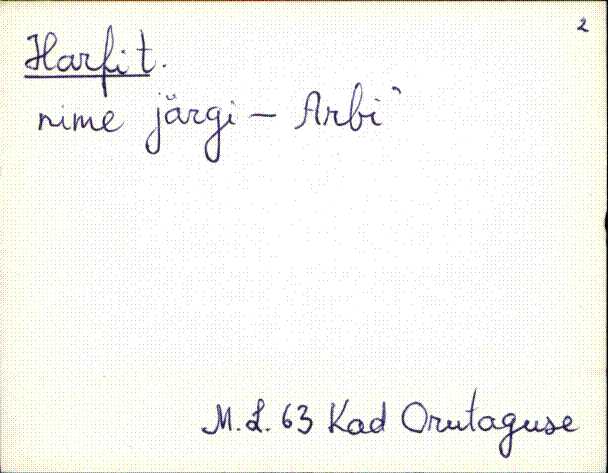 2
Harfit.
nime järgi – Arbi`
M.L. 63 Kad Orutaguse